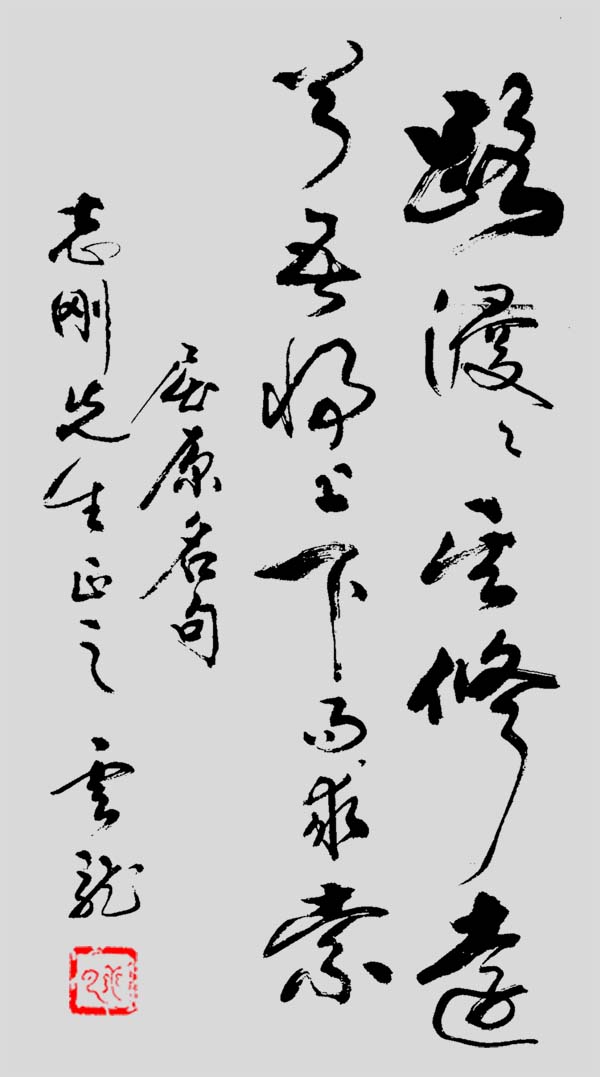 路漫〻其修遠
兮吾將上下而求索
屈原名句
志刚先生正之 雲龍